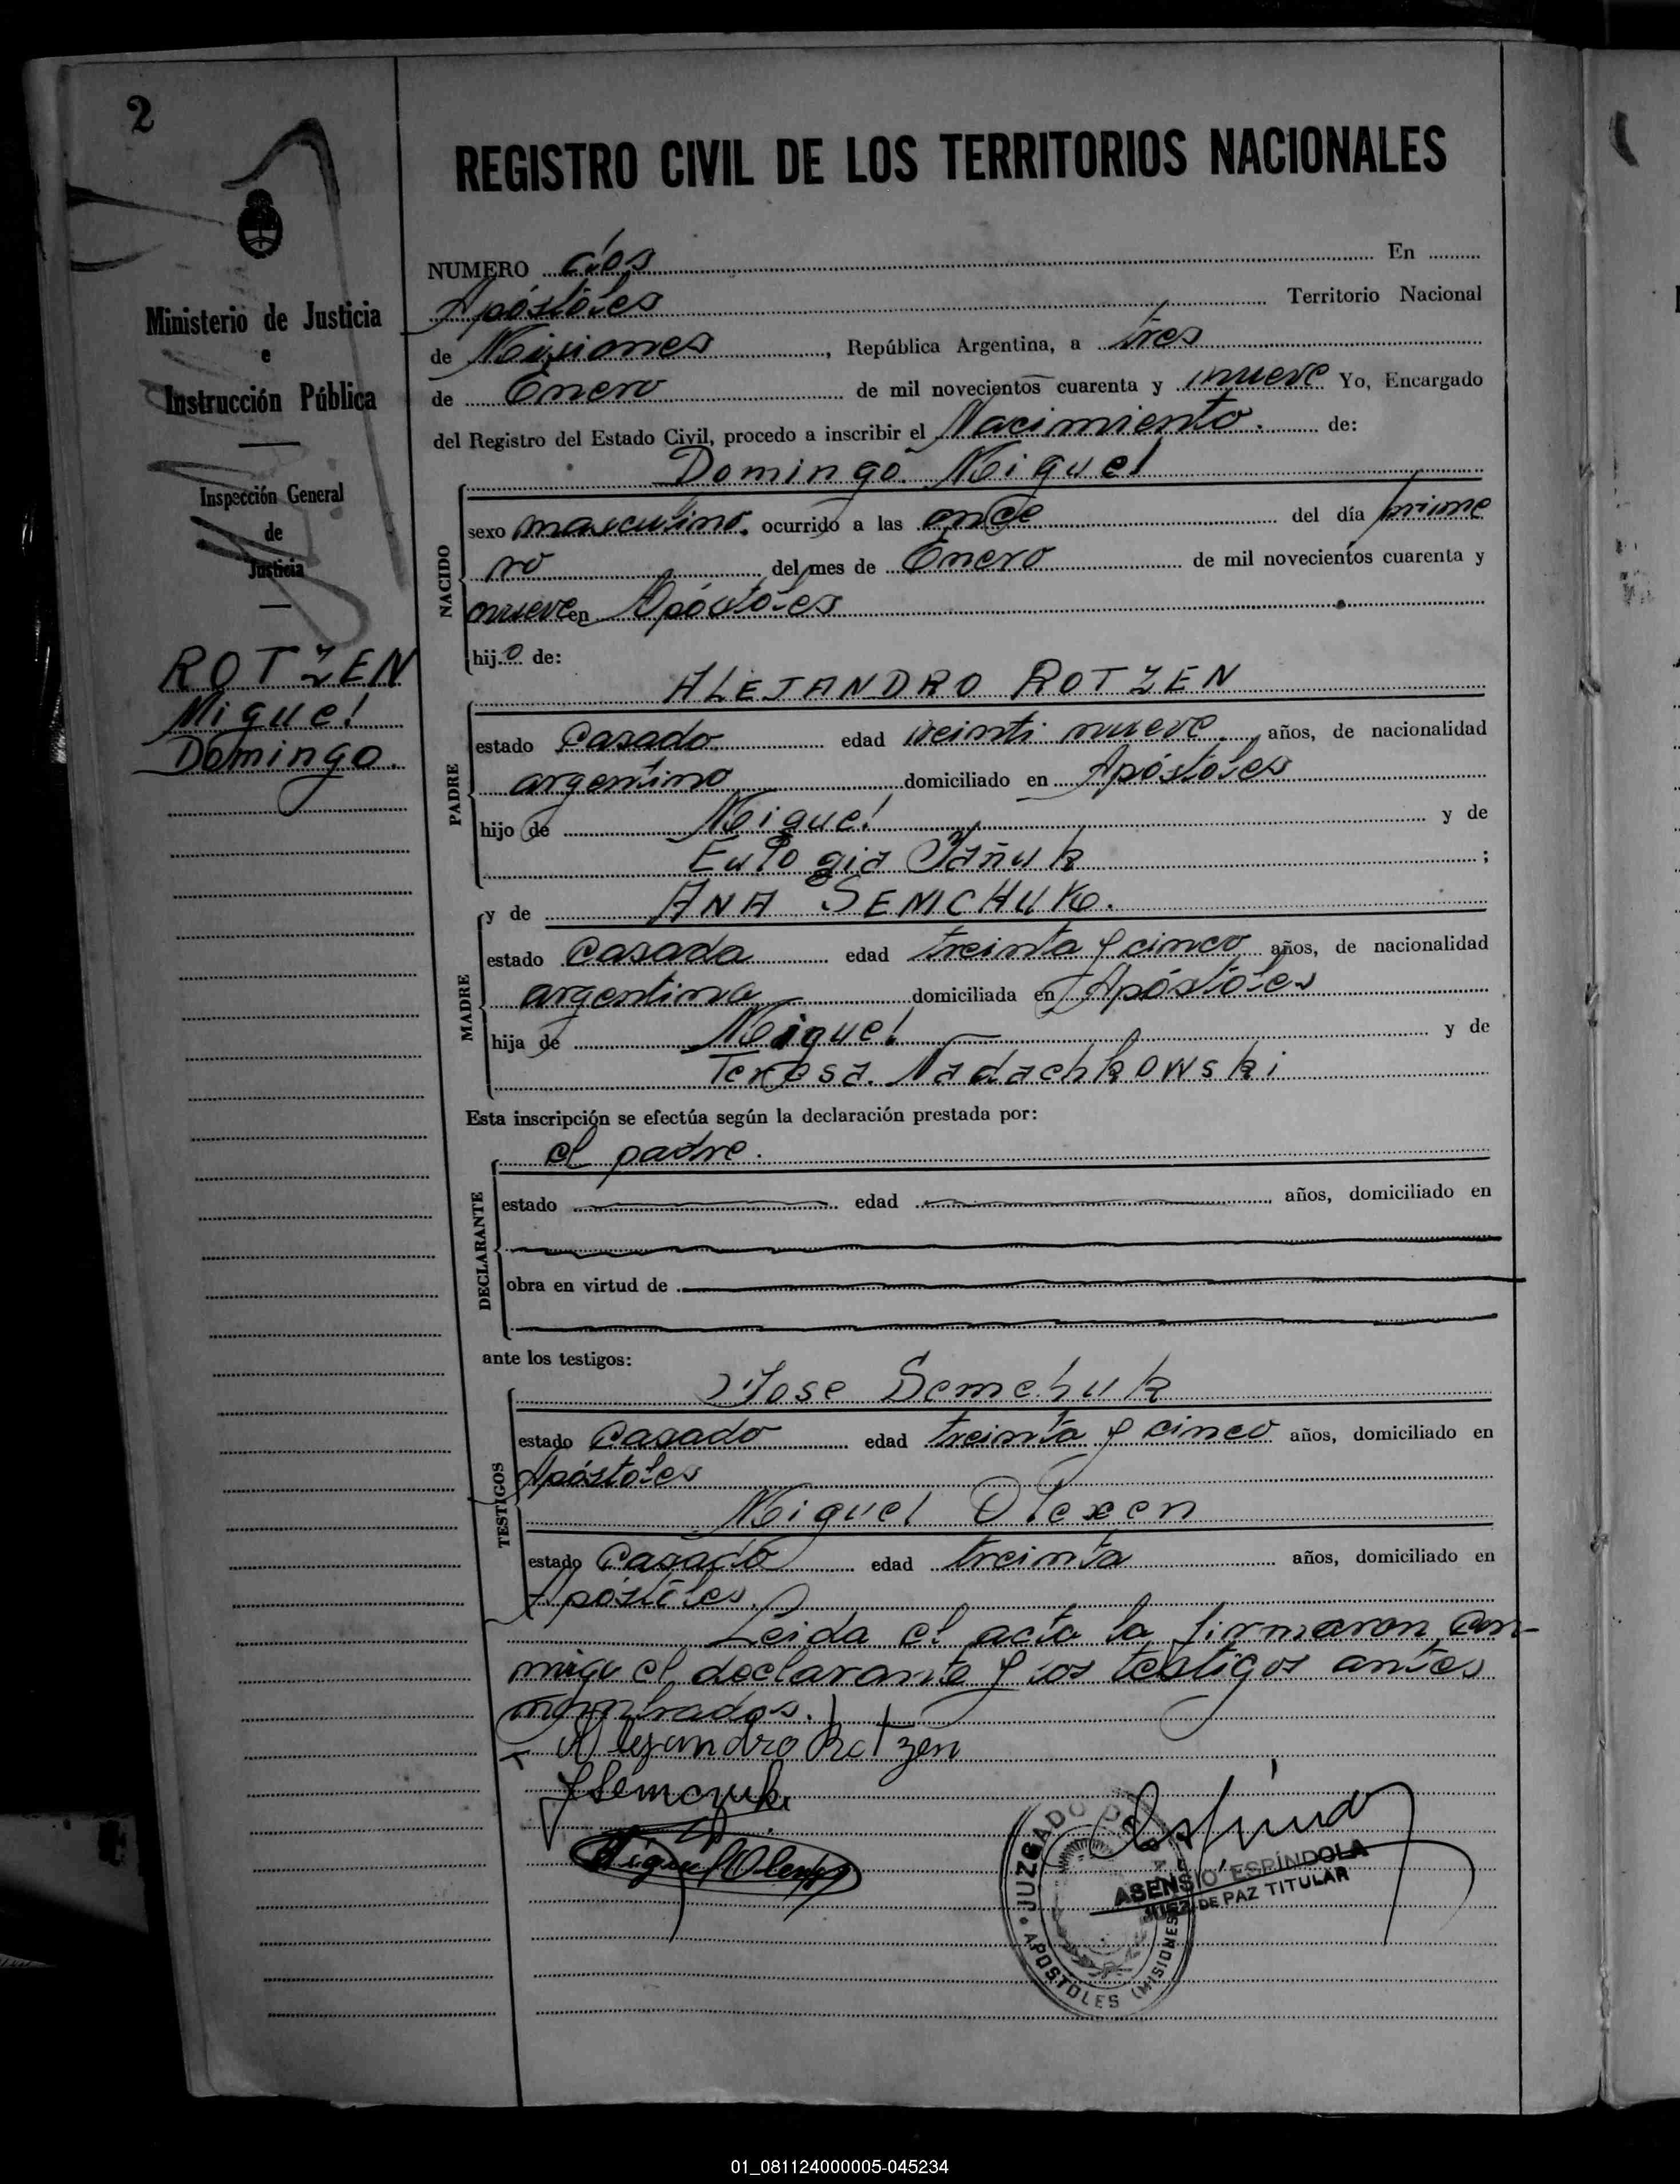 2
REGISTRO CIVIL DE LOS TERRITORIOS NACIONALES
Ministerio de Justicia
e
Instrucción Pública
Inspección General
de
Justicia
ROTZEN
Miguel
Domingo.
NUMERO dos En
Apóstoles Territorio Nacional
de Misiones, República Argentina, a tres
de Enero de mil novecientos cuarenta y nueve Yo, Encargado
del Registro del Estado Civil, procedo a inscribir el Nacimiento. de:
Domingo Miguel
NACIDO
sexo masculino. ocurrido a las once del día prime
ro del mes de Enero de mil novecientos cuarenta y
nueve en Apóstoles
hijo de:
PADRE
ALEJANDRO ROTZEN
estado Casado edad veinti nueve años, de nacionalidad
argentino domiciliado en Apóstoles
hijo de Miguel y de
Eulogia ;
MADRE
y de ANA SEMCHUK.
estado Casada edad treinta y cinco años, de nacionalidad
argentina domiciliada en Apóstoles
hija de Miguel y de
Teresa Nadachkowski
Esta inscripción se efectúa según la declaración prestada por:
DECLARANTE
el padre.
estado edad años, domiciliado en
obra en virtud de
ante los testigos:
TESTIGOS
Jose Semchuk
estado Casado edad treinta y cinco años, domiciliado en
Apóstoles
Miguel Olexen
estado Casado edad treinta años, domiciliado en
Apóstoles
Leida el acta la firmaron con-
migo el declarante y los testigos antes
nombrados.
Alejandro Rotzen
JSemczuk
Miguel
JUZGADO DE PAZ
APOSTOLES (MISIONES)
ASENSIO ESPÍNDOLA
JUEZ DE PAZ TITULAR
01_081124000005-045234